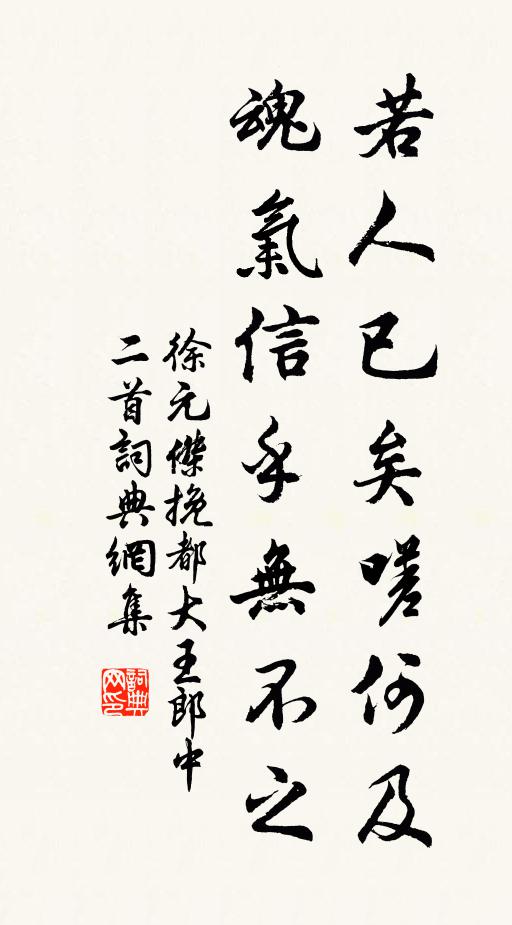 若人已矣嗟何及
魂氣信乎無不之
徐元傑挽都大王郎中
二首詞典網集
詞典网印